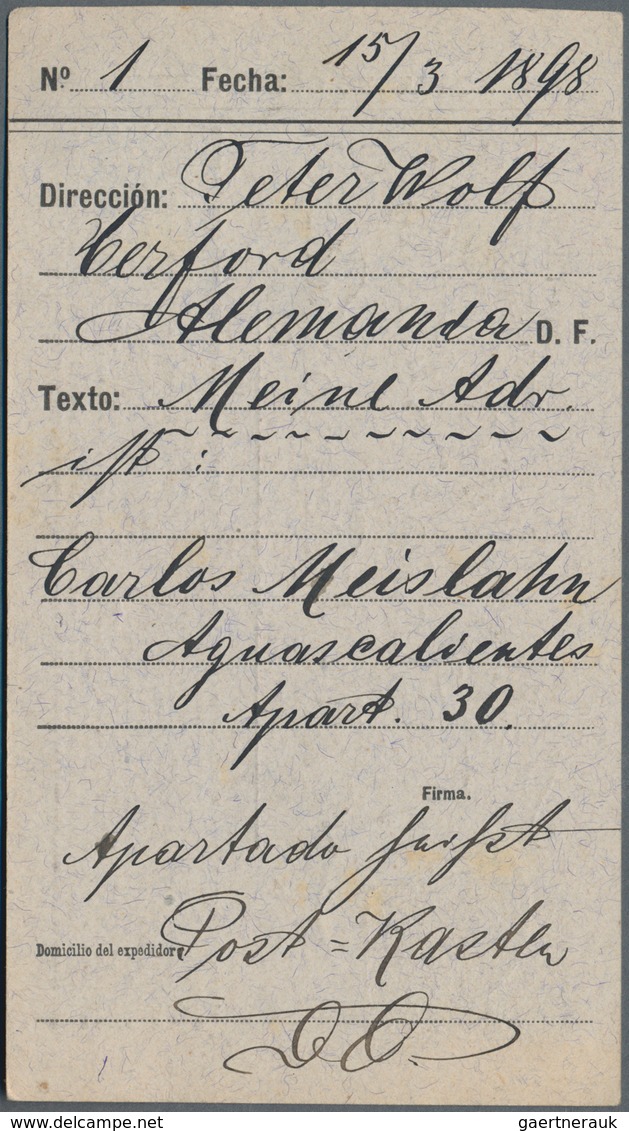 Nº 1 Fecha: 15/3 1898
Dirección: Peter Wolf
Herford
Alemania D. F.
Texto: Meine Adr.
ist:
Carlos Meislahn
Aguascalientes
Apart. 30.
Firma.
Apartado heißt
Domicilio del expedidor Post=Kasten
gaertnerauk